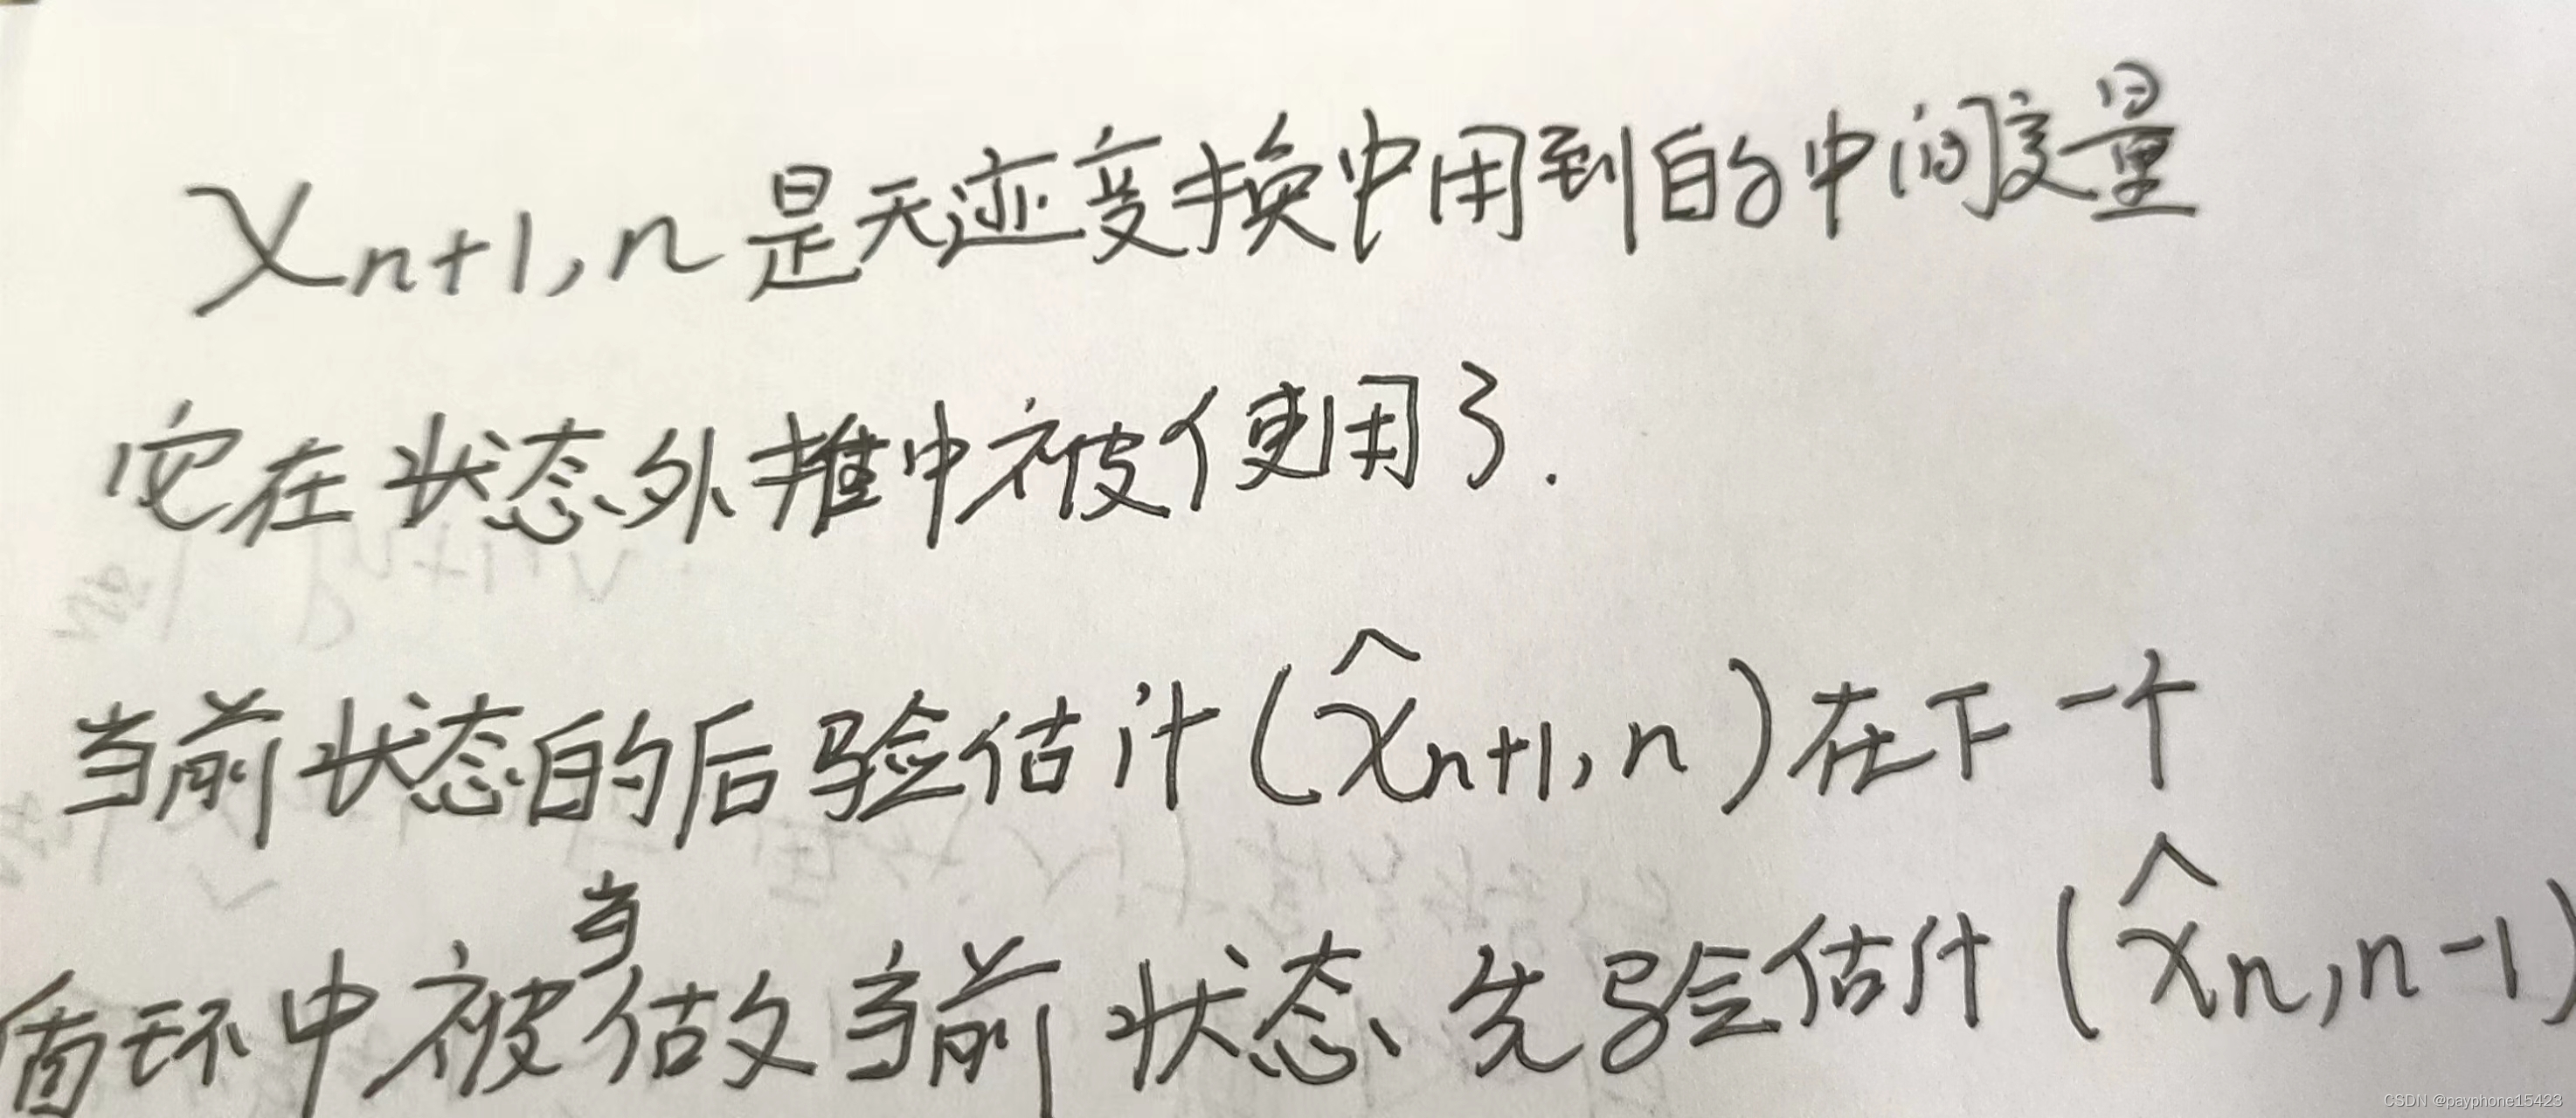 χn+1,n是无迹变换中用到的中间变量
它在状态外推中被使用了.
当前状态的后验估计(x̂n+1,n)在下一个
循环中被当做当前状态先验估计(x̂n,n-1)
CSDN @payphone15423